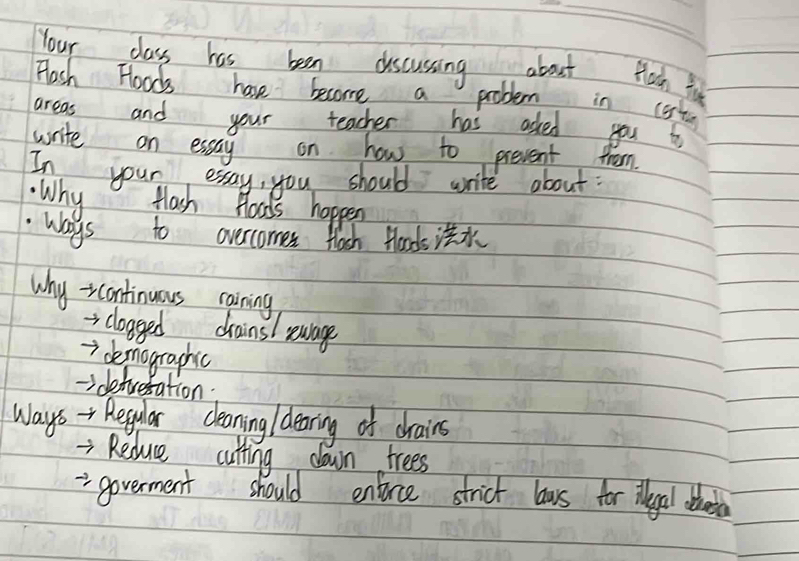 Your class has been discussing about flash
Flash Floods have become a problem in certain
areas and your teacher has asked you to
write an essay on how to prevent them.
In your essay, you should write about:
• Why flash floods happen
• Ways to overcomes flash floods 洪水
Why → continuous raining
→ clogged drains/sewage
→ demographic
→ deforestation.
Ways → Regular cleaning/clearing of drains
→ Reduce cutting down trees
→ goverment should enforce strict laws for illegal